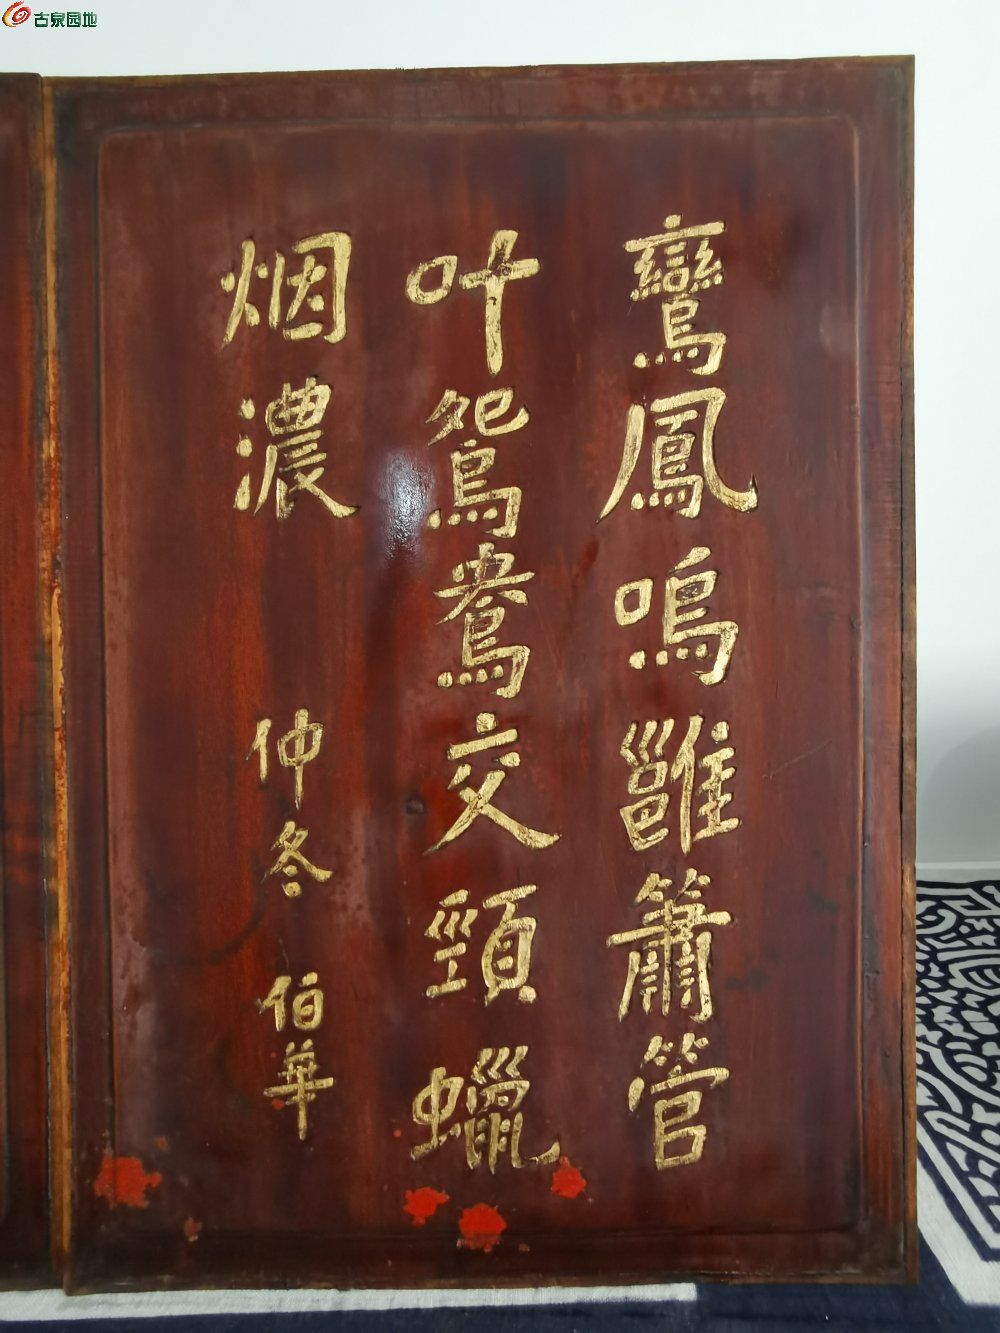 古泉园地
鸞鳳鳴雝簫管
叶鴛鴦交頸蠟
烟濃
仲冬 伯華